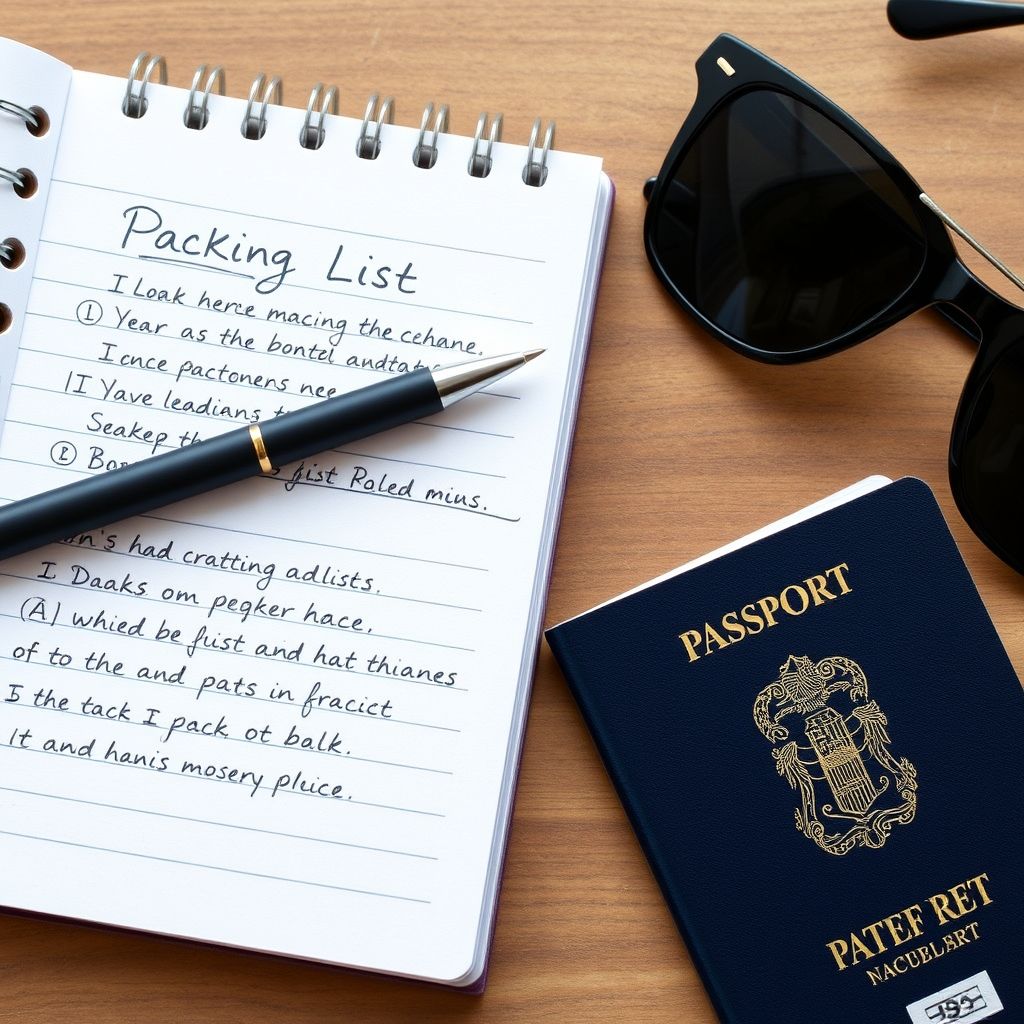 Packing List
I Loak herce macing the cehane.
① Year as the bontel
I cnce pactoners nee
II Yave leadians
Seakep
fist Roled mius.
had cratting adlists.
I Daaks om peqker hace.
(A) whied be fuist and hat thianes
of to the and pats in fracict
5 the tack I pack ot balk.
It and hanis mosery pluice.
PASSPORT
PATEF RET
NACUELBRT